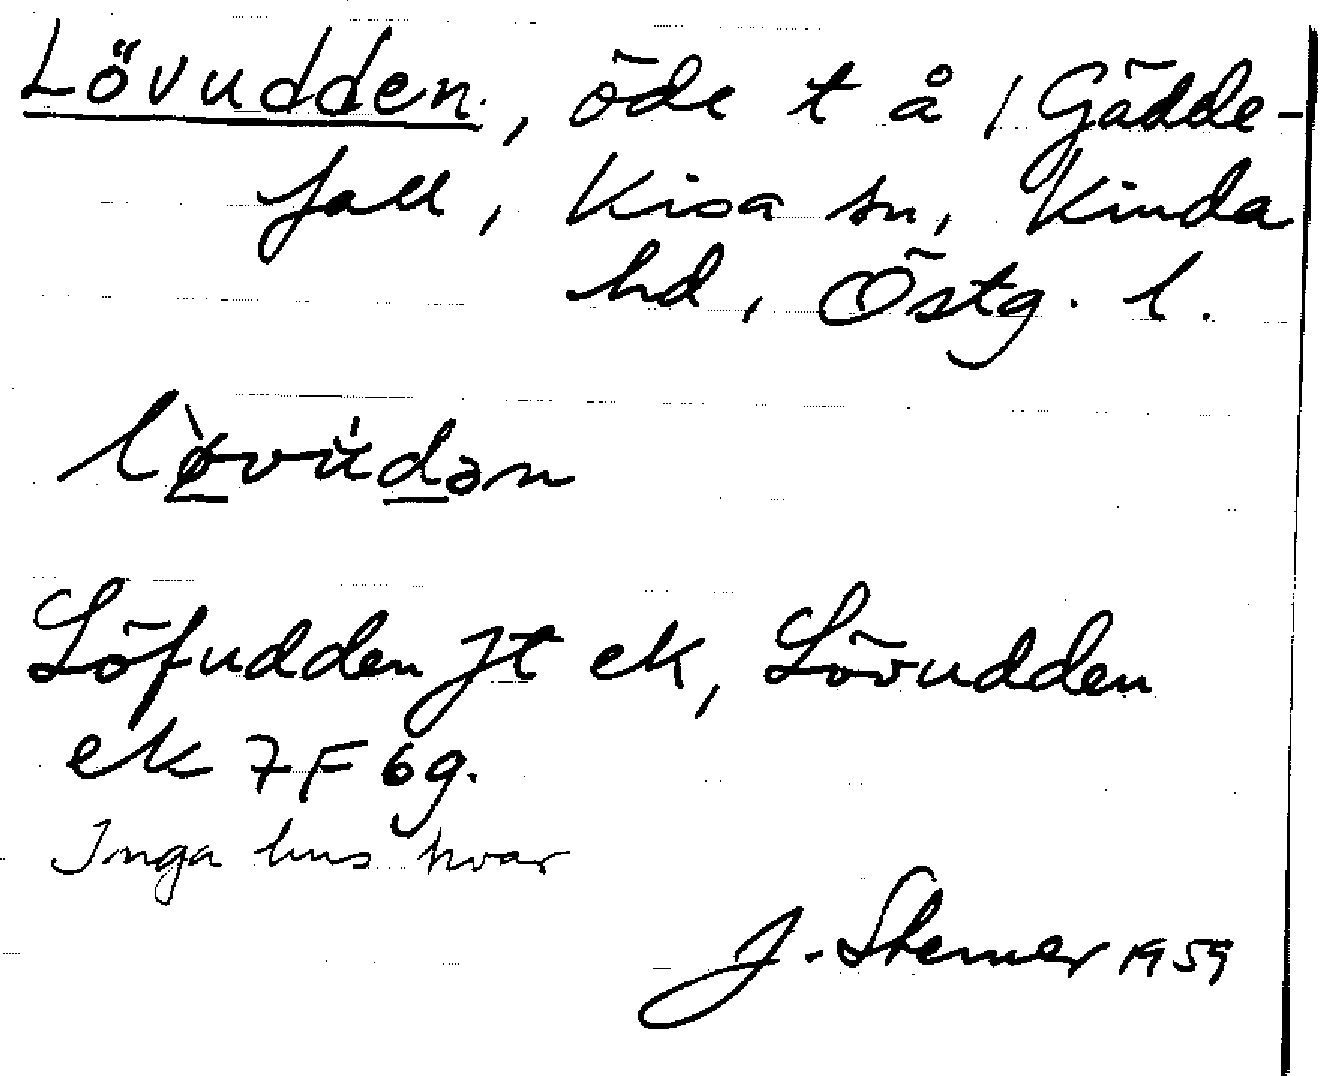 Lövudden, öde t å 1 Gädde-
fall, Kisa sn, Kinda
hd, Östg. l.
lø̀vùdən
Löfudden Jt ek, Lövudden
ek 7F 6g.
Inga hus kvar
J. Sterner 1959